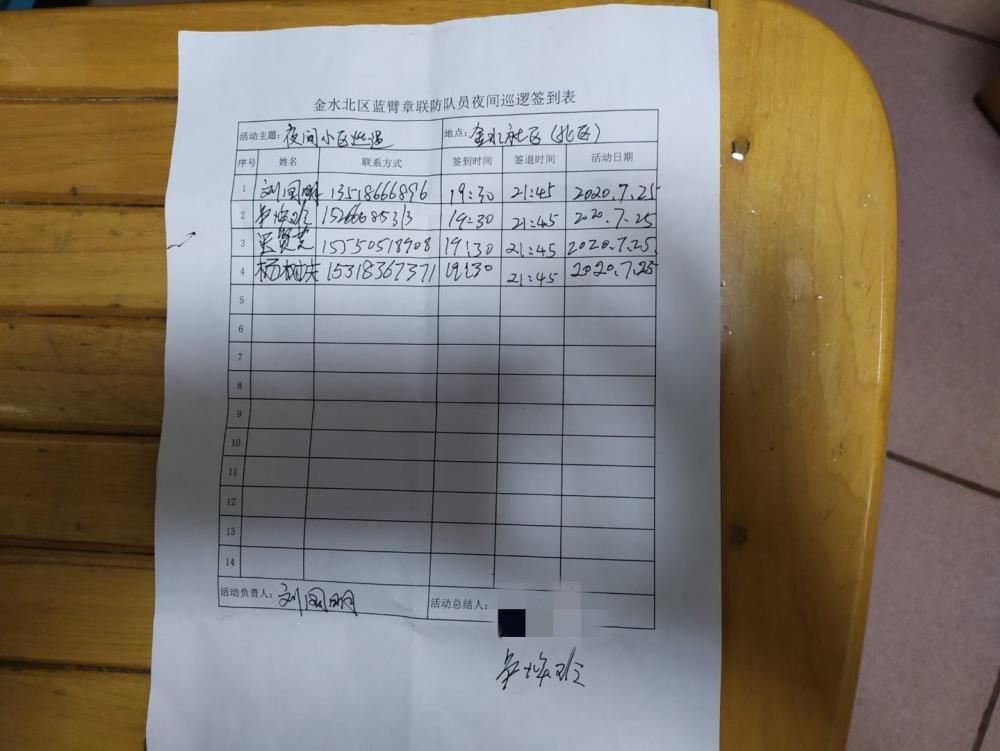 金水北区蓝臂章联防队员夜间巡逻签到表
活动主题: 夜间小区巡逻 地点: 金水社区(北区)
序号 姓名 联系方式 签到时间 签退时间 活动日期
1 刘国明 13518666896 19:30 21:45 2020.7.25
2 19:30 21:45 2020.7.25
3 15550518908 19:30 21:45 2020.7.25
4 杨树夫 15318367371 19:30 21:45 2020.7.25
5
6
7
8
9
10
11
12
13
14
活动负责人: 刘国明 活动总结人: